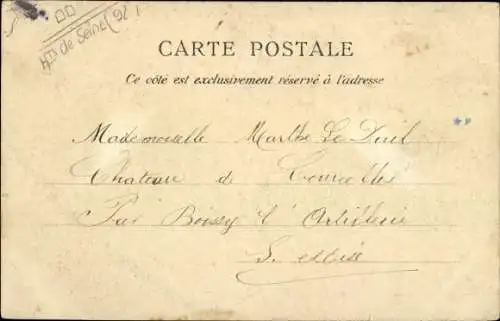 Hts de Seine (92)
CARTE POSTALE
Ce côté est exclusivement réservé à l'adresse
Mademoiselle Marthe Le
Chateau de Courcelles
Par Boissy l'Artillerie
S.